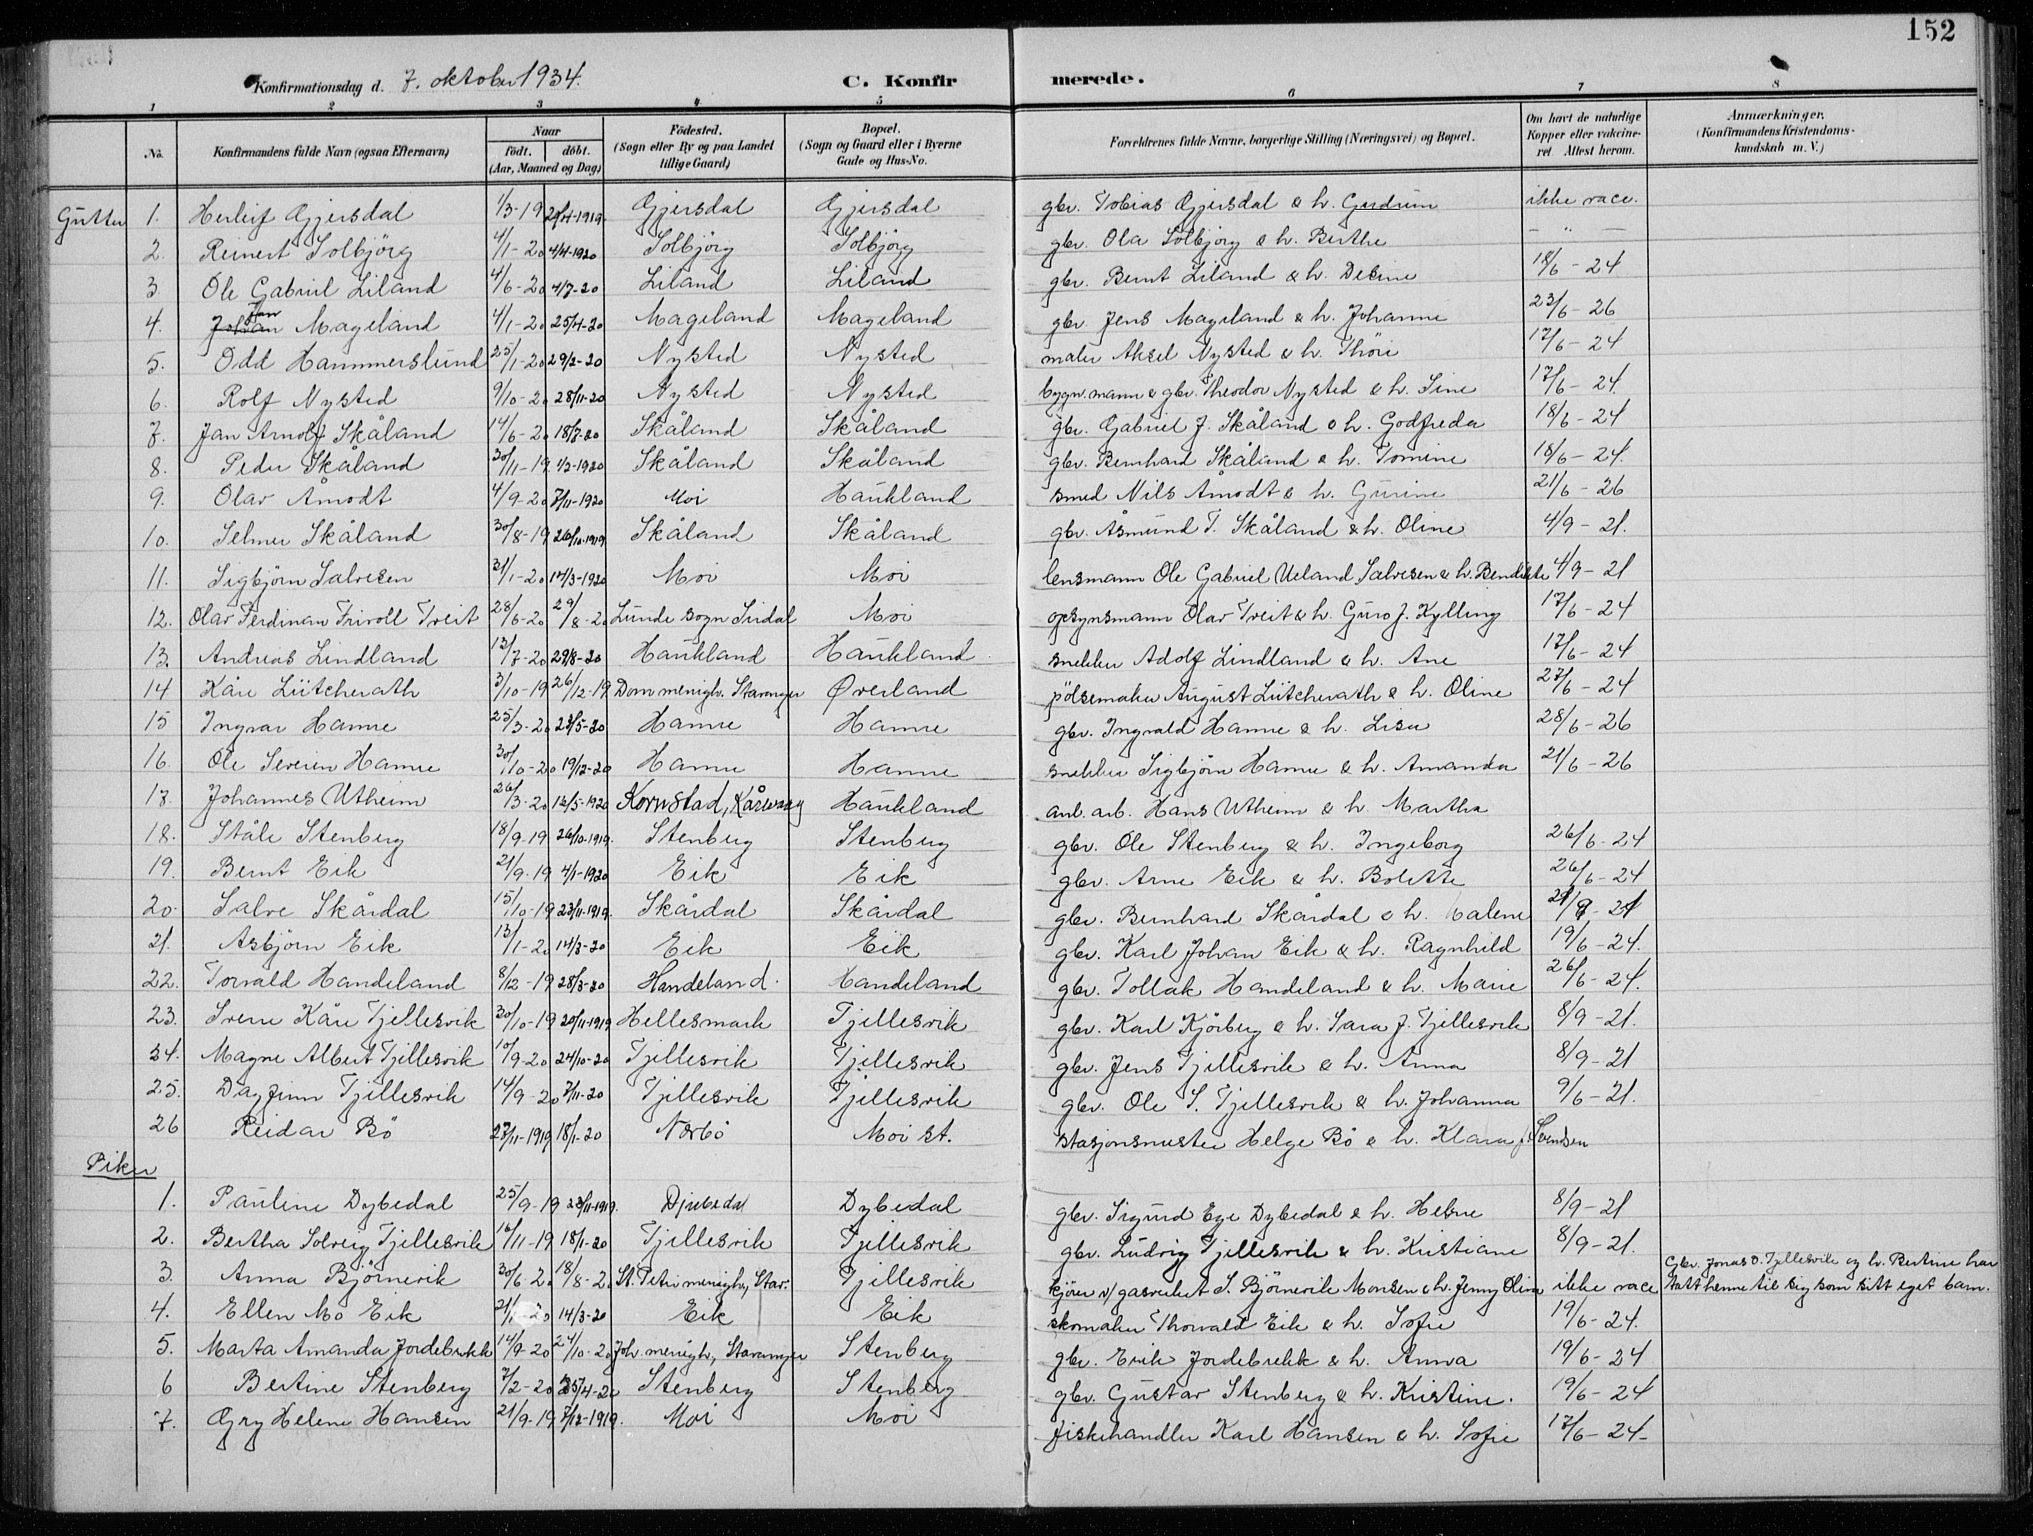 152
Konfirmationsdag d. 7. oktober 1934. C. Konfirmerede.
1 2 3 4 5 6 7 8
No. Konfirmandens fulde Navn (ogsaa Efternavn) Naar født. døbt. (Aar, Maaned og Dag) Fødested. (Sogn eller By og paa Landet tillige Gaard) Bopæl. (Sogn og Gaard eller i Byerne Gade og Hus-No. Forældrenes fulde Navne, borgerlige Stilling (Næringsvei) og Bopæl. Om havt de naturlige Kopper eller vaccineret. Attest herom. Anmærkninger. (Konfirmandens Kristendomskundskab m. V.)
Gutter 1. Herleif Gjersdal 1/3-19 29/4-1919. Gjersdal Gjersdal gbr. Tobias Gjersdal & h. Gudrun ikke vacc.
2. Reinert Solbjörg 4/1-20 4/4-1920 Solbjörg Solbjörg gbr. Ola Solbjörg & h. Berthe - " -
3 Ole Gabriel Liland 4/6-20 4/7-20 Liland Liland gbr. Bernt Liland & h. 18/6-24
4. Jan Mageland 4/1-20 25/4-20 Mageland Mageland gbr. Jens Mageland & h. Johanne 23/6-26
5. Odd Hammerslund 25/1-20 29/2-20 Nysted Nysted maler Aksel Nysted & h. Thöre 17/6-24
6. Rolf Nysted 9/10-20 28/11-20 Nysted Nysted bygn.mann & gbr. Theodor Nysted & h. Sine 17/6-24.
7. Jan Arnolf Skåland 14/6-20 18/7-20 Skåland Skåland gbr. Gabriel J. Skåland & h. Godfreda 18/6-24
8. Peder Skåland 30/11-19. 1/2-1920 Skåland Skåland gbr. Bernhard Skåland & h. Tomine 18/6-24.
9. Olav Åmodt 4/9-20 7/11-1920 Moi Haukland smed Nils Åmodt & h. Gurine 21/6-26
10. Selmer Skåland 30/8-19 26/10-1919 Skåland Skåland gbr. Åsmund T. Skåland & h. Oline 4/9-21.
11. Sigbjörn Salvesen 31/1-20 14/3-1920 Moi Moi lensmann Ole Gabriel Ueland Salvesen & h. Bendikte 4/9-21
12. Olav Ferdinan Frivoll Treit 28/6-20 29/8-20 Lunde sogn Sirdal Moi opsynsmann Olav Treit & h. Guro J. Kylling 17/6-24
13. Andreas Lindland 13/7-20 29/8-20 Haukland Haukland snekker Adolf Lindland & h. Ane 17/6-24
14 Kåre Lütcherath 3/10-19 26/12-19 Dom menigh. Stavanger Överland pölsemaker August Lütcherath & h. Oline 27/6-24
15 Ingvar Hamre 25/3-20 23/5-20 Hamre Hamre gbr. Ingvald Hamre & h. Lisa 28/6-26
16. Ole Severin Hamre 30/10-20 19/12-20 Hamre Hamre snekker Sigbjörn Hamre & h. Amanda 21/6-26
17. Johannes Utheim 26/3-20 12/5-1920 Kornstad, Kårvaag Haukland anl. arb. Hans Utheim & h. Martha
18. Ståle Stenberg 18/9-19 26/10-1919. Stenberg Stenberg gbr. Ole Stenberg & h. Ingeborg 26/6-24
19. Bernt Eik 21/9-19 4/1-1920 Eik Eik gbr. Arne Eik & h. Bolette 26/6-24
20. Salve Skårdal 15/10-19 23/11-1919. Skårdal Skårdal gbr. Bernhard Skårdal & h. Malene
21. Asbjörn Eik 13/1-20 14/3-20 Eik Eik gbr. Karl Johan Eik & h. Ragnhild 19/6-24.
22. Torvald Handeland 8/12-19 28/3-20 Handeland. Handeland gbr. Tollak Handeland & h. Marie 26/6-24.
23. Sverre Kåre Tjellesvik 30/10-19 20/11-1919 Hellesmark Tjellesvik gbr. Karl Kjörberg & h. Sara J. Tjellesvik 8/9-21.
24. Magne Albert Tjellesvik 10/9-20 24/10-20 Tjellesvik Tjellesvik gbr. Jens Tjellesvik & h. Anna 8/9-21
25. Dagfinn Tjellesvik 14/9-20 7/11-20 Tjellesvik Tjellesvik gbr. Ole S. Tjellesvik & h. Johanna 9/6-21.
26 Reidar Bö 27/11-1919 18/1-20 Nærbö Moi st. stasjonsmester Helge Bö & h. Klara f. Svendsen
Piker
1. Pauline Dybedal 25/9-19 23/11-1919. Djubedal Dybedal gbr. Sigurd Ege Dybedal & h. Helene 8/9-21
2. Bertha Solveig Tjellesvik 16/11-19 18/1-20 Tjellesvik Tjellesvik gbr. Ludvig Tjellesvik & h. Kristiane 8/9-21.
3. Anna Björnevik 30/6-20 18/8-20 St. Petri menigh., Stav. Tjellesvik kjörer v/ gasverket S. Björnevik Monsen & h. Jenny Oline ikke vacc Gbr. Jonas O. Tjellesvik og h. Bertine har tatt henne til sig som sitt eget barn.
4. Ellen Mo Eik 14/3-20 Eik Eik skomaker Thorvald Eik & h. Sofie 19/6-24.
5. Marta Amanda Jordebrekk 14/9-20 24/10-20 Joh. menigh., Stavanger Stenberg gbr. Erik Jordebrekk & h. Anna 19/6-24
6 Bertine Stenberg 7/2-20 25/4-20 Stenberg Stenberg gbr. Gustav Stenberg & h. Kristine. 19/6-24
7. Gry Helene Hansen 21/9-19 7/12-1919. Moi Moi fiskehandler Karl Hansen & h. Sofie 17/6-24-